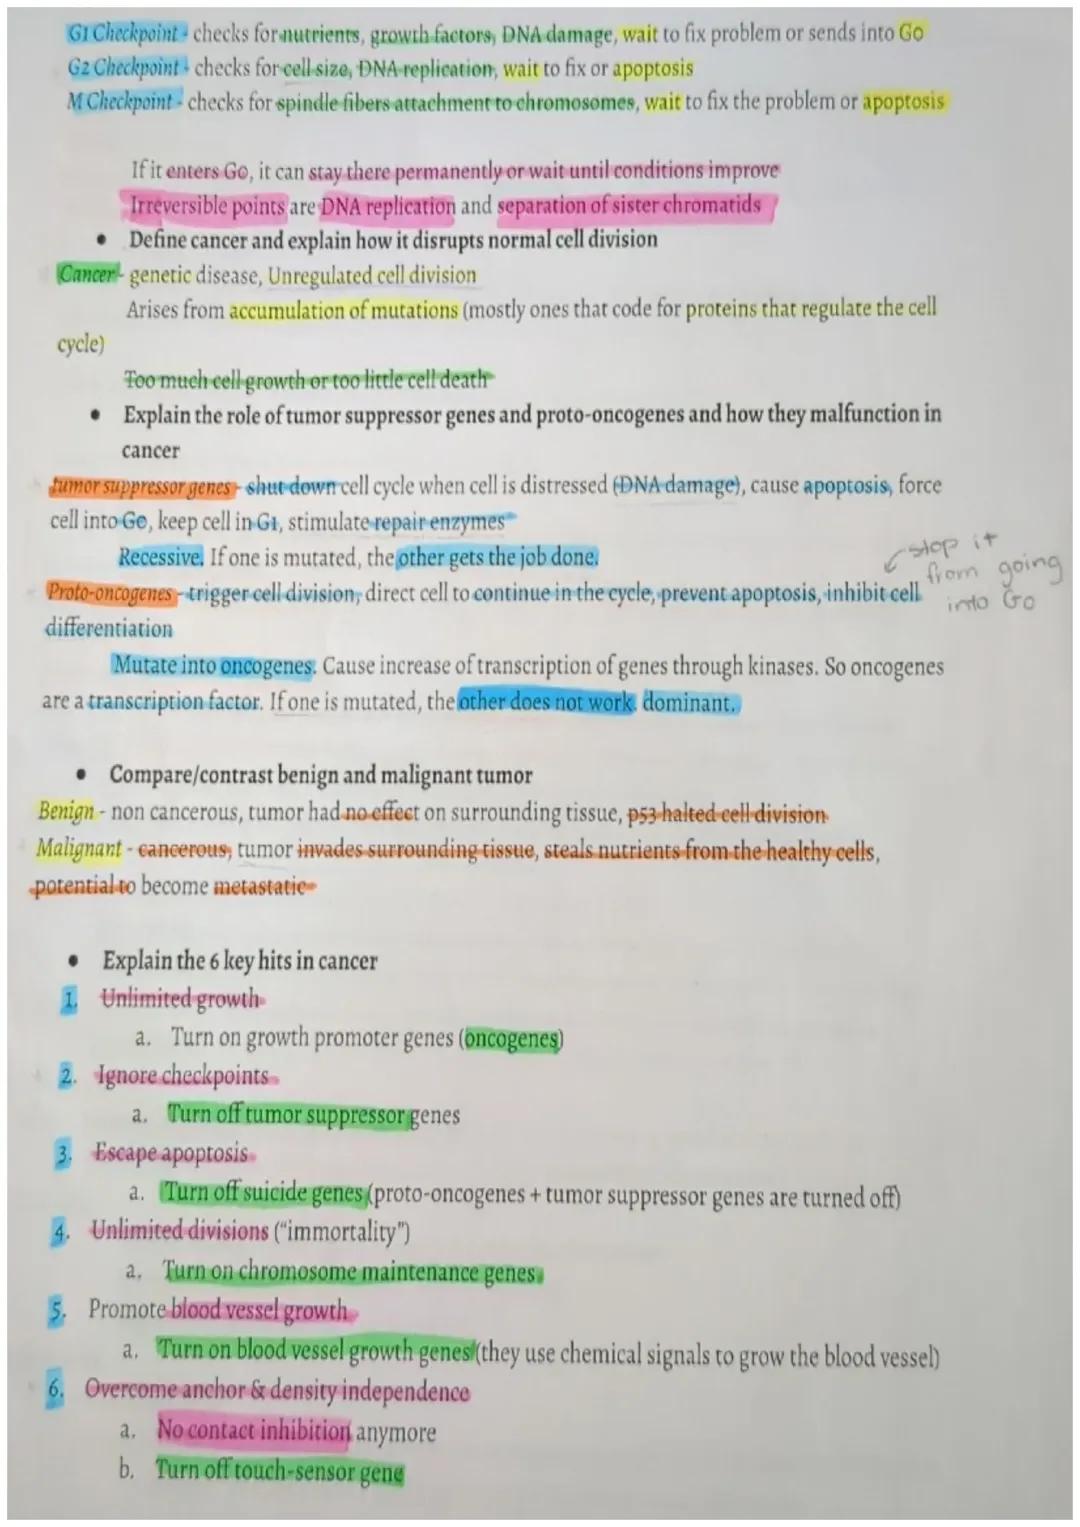 G1 Checkpoint - checks for nutrients, growth factors, DNA damage, wait to fix problem or sends into Go
G2 Checkpoint - checks for cell size, DNA replication, wait to fix or apoptosis
M Checkpoint - checks for spindle fibers attachment to chromosomes, wait to fix the problem or apoptosis
If it enters Go, it can stay there permanently or wait until conditions improve
Irreversible points are DNA replication and separation of sister chromatids
• Define cancer and explain how it disrupts normal cell division
Cancer - genetic disease, Unregulated cell division
Arises from accumulation of mutations (mostly ones that code for proteins that regulate the cell
cycle)
Too much cell growth or too little cell death
• Explain the role of tumor suppressor genes and proto-oncogenes and how they malfunction in
cancer
tumor suppressor genes - shut down cell cycle when cell is distressed (DNA damage), cause apoptosis, force
cell into Go, keep cell in G1, stimulate repair enzymes
Recessive. If one is mutated, the other gets the job done.
Proto-oncogenes - trigger cell division, direct cell to continue in the cycle, prevent apoptosis, inhibit cell
differentiation
stop it
from going
into Go
Mutate into oncogenes. Cause increase of transcription of genes through kinases. So oncogenes
are a transcription factor. If one is mutated, the other does not work. dominant.
• Compare/contrast benign and malignant tumor
Benign - non cancerous, tumor had no effect on surrounding tissue, p53 halted cell division
Malignant - cancerous, tumor invades surrounding tissue, steals nutrients from the healthy cells,
potential to become metastatic
• Explain the 6 key hits in cancer
1. Unlimited growth
a. Turn on growth promoter genes (oncogenes)
2. Ignore checkpoints
a. Turn off tumor suppressor genes
3. Escape apoptosis
a. Turn off suicide genes (proto-oncogenes + tumor suppressor genes are turned off)
4. Unlimited divisions ("immortality")
a. Turn on chromosome maintenance genes
5. Promote blood vessel growth
a. Turn on blood vessel growth genes (they use chemical signals to grow the blood vessel)
6. Overcome anchor & density independence
a. No contact inhibition anymore
b. Turn off touch-sensor gene